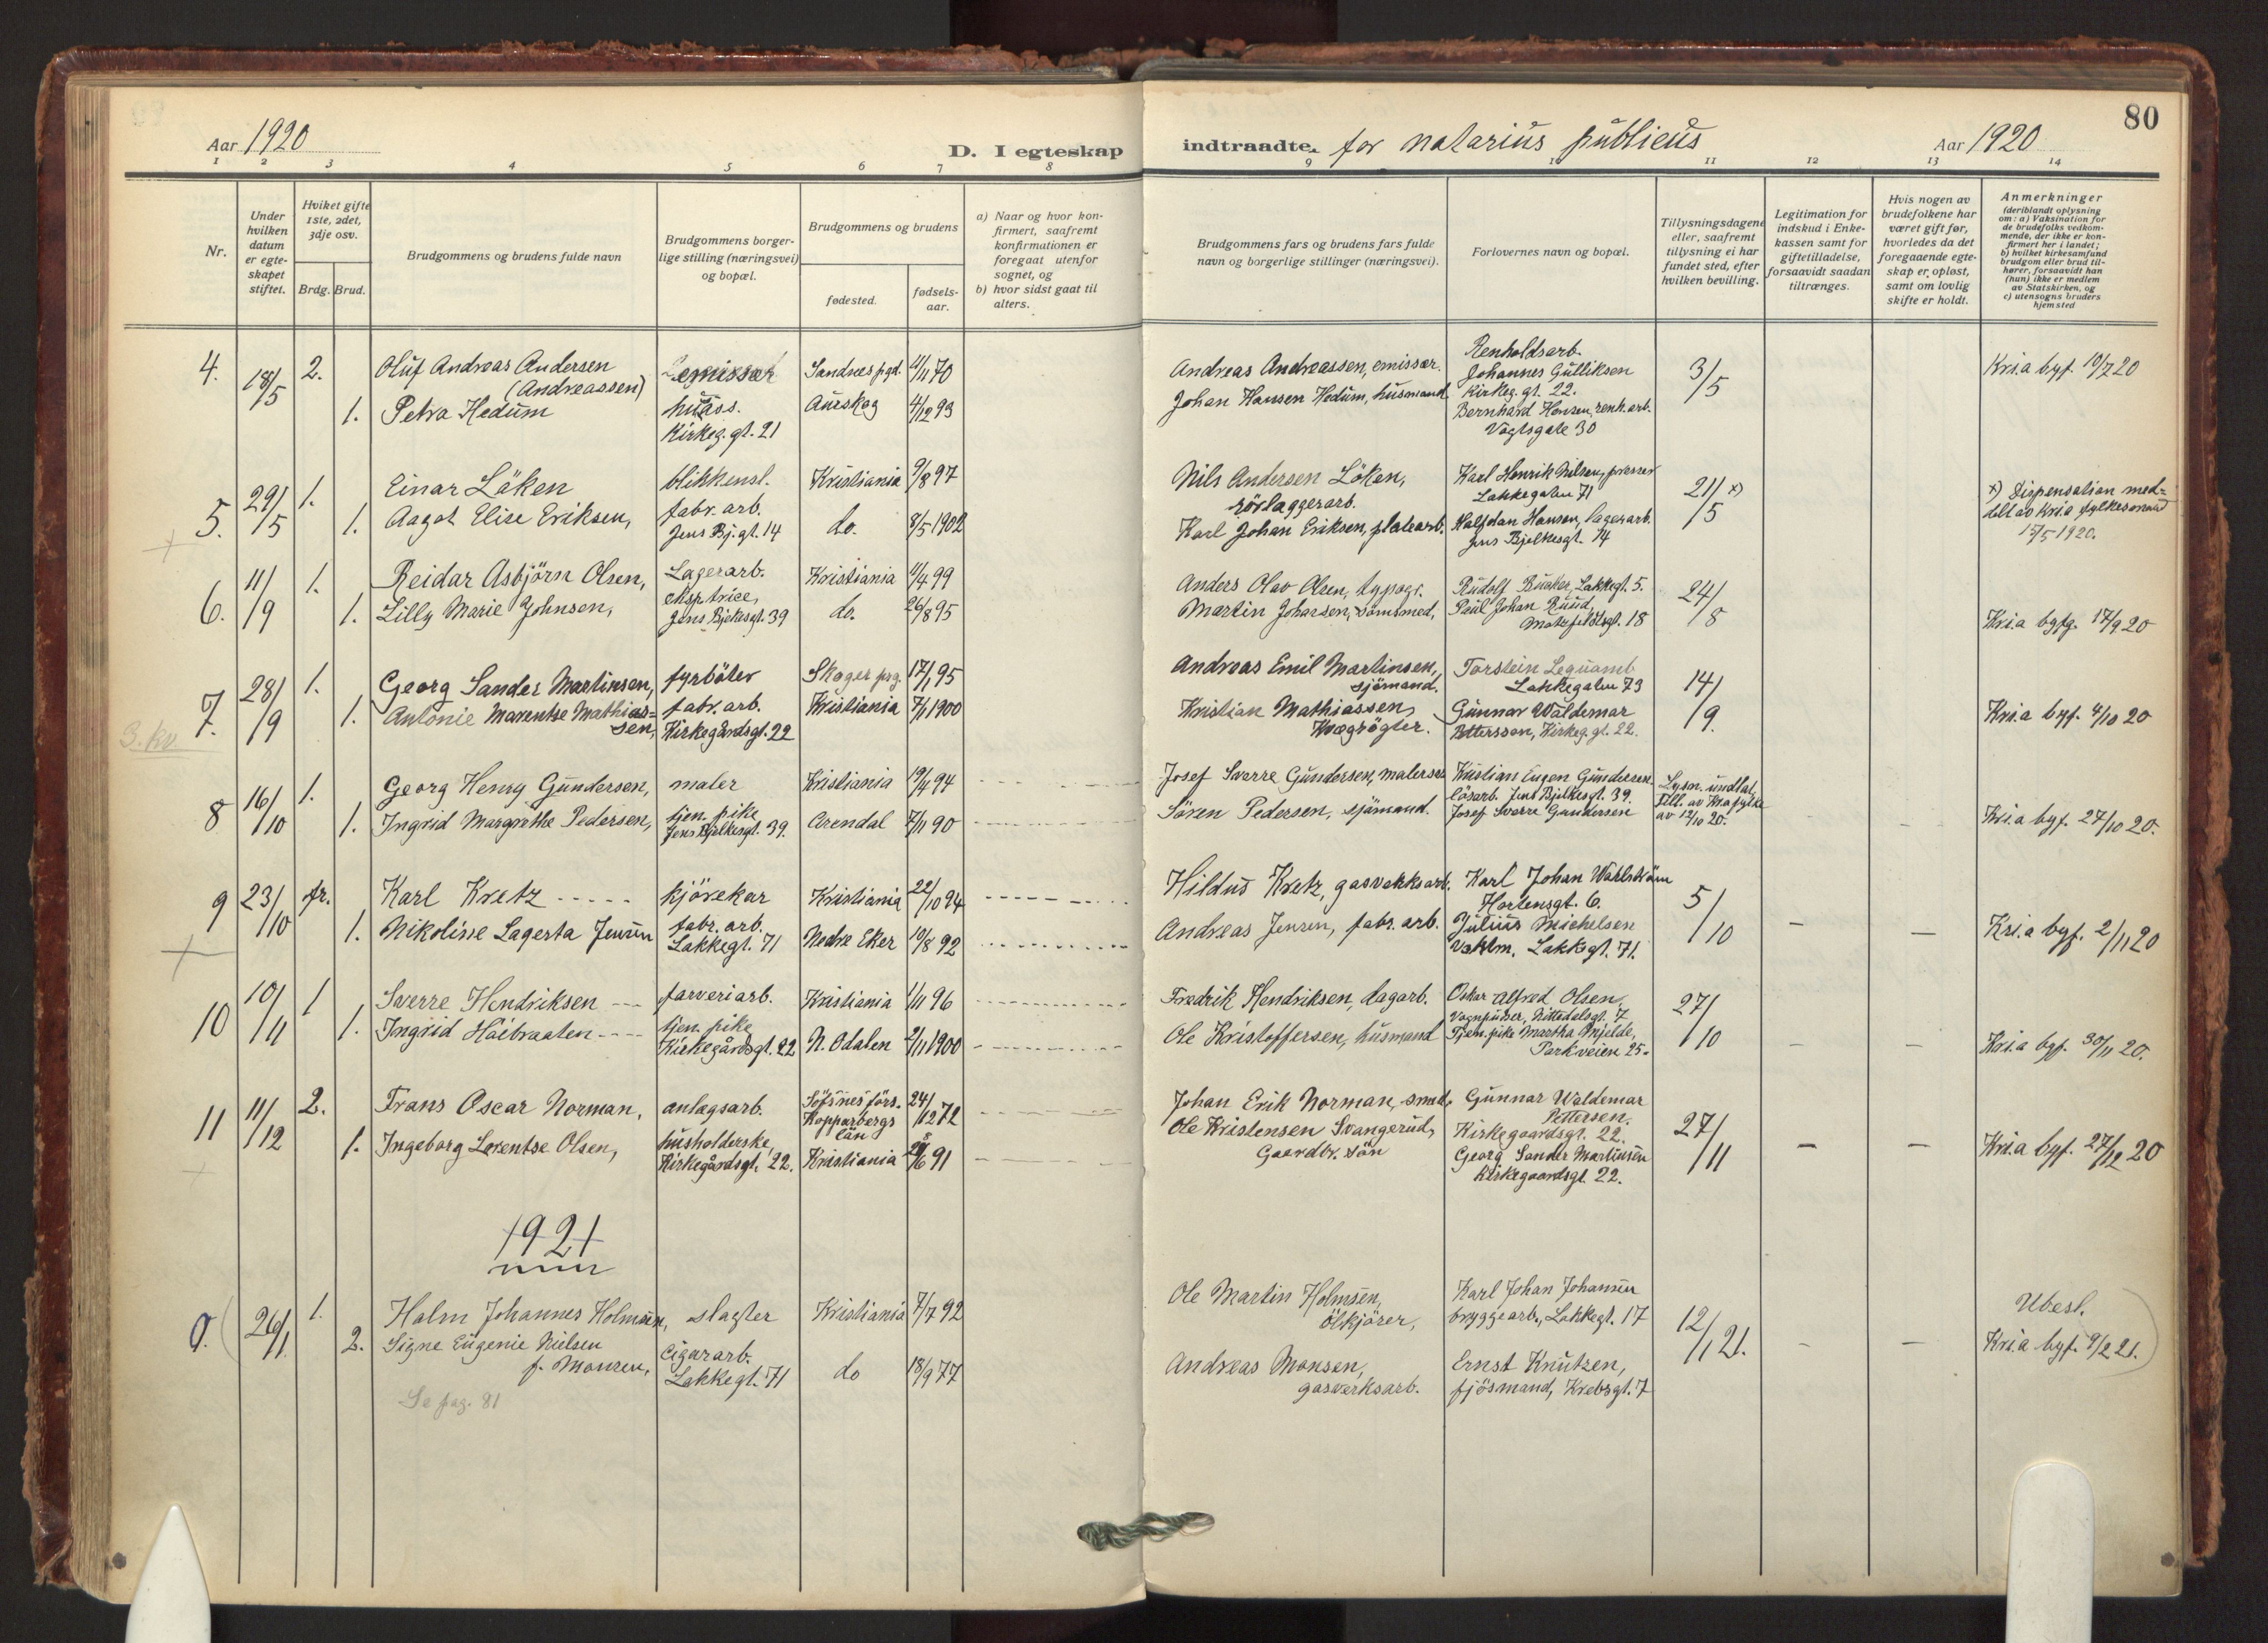 80
Aar 1920
D. I egteskap indtraadte. for notarius publicus
Aar 1920
1 2 3 4 5 6 7 8 9 10 11 12 13 14
Nr.
Under hvilken datum er egteskapet stiftet.
Hvilket gifte 1ste, 2det, 3dje osv.
Brdg. Brud.
Brudgommens og brudens fulde navn
Brudgommens borgerlige stilling (næringsvei) og bopæl.
Brudgommens og brudens
fødested.
fødselsaar.
a) Naar og hvor konfirmert, saafremt konfirmationen er foregaat utenfor sognet, og
b) hvor sidst gaat til alters.
Brudgommens fars og brudens fars fulde navn og borgerlige stillinger (næringsvei).
Forlovernes navn og bopæl.
Tillysningsdagene eller, saafremt tillysning ei har fundet sted, efter hvilken bevilling.
Legitimation for indskud i Enkekassen samt for giftetilladelse, forsaavidt saadan tiltrænges.
Hvis nogen av brudefolkene har været gift før, hvorledes da det foregaaende egteskap er opløst, samt om lovlig skifte er holdt.
Anmerkninger
(deriblandt oplysning om: a) Vaksination for de brudefolks vedkommende, der ikke er konfirmert her i landet; b) hvilket kirkesamfund brudgom eller brud tilhører, forsaavidt han (hun) ikke er medlem av Statskirken, og c) utensogns bruders hjemsted
4. 18/5 2. Oluf Andreas Andersen (Andreassen) emissær Sandnes pgd. 11/11 70
1. Petra Hedum huass. Kirkeg.gt. 21 Aurskog 4/12 93
Andreas Andreassen, emissær.
Johan Hansen Hedum, husmand
Renholdsarb. Johannes Gulliksen Kirkeg. gt. 22.
Bernhard Hansen, renh.arb. Vogtsgate 30
3/5
Kri.a byf. 10/7 20
5. 29/5 1. Einar Löken blikkensl. Kristiania 9/8 97
1. Aagot Elise Eriksen, fabr. arb. Jens Bj.gt. 14 do. 8/5 1902
Nils Andersen Löken, rörlæggerarb.
Karl Johan Eriksen, platearb.
Karl Henrik Nilsen, presser Lakkegaten 71
Halfdan Hansen, lagerarb. Jens Bjelkesgt. 14
21/5 x)
x) Dispensation meddelt av Kria fylkesmand 15/5 1920.
6. 11/9 1. Reidar Asbjörn Olsen, Lagerarb. Kristiania 11/4 99
1. Lilly Marie Johnsen, eksptrice, Jens Bjelkesgt. 39 do. 26/8 95
Anders Olav Olsen, typogr.
Martin Johansen,
Rudolf Lakkegt. 5.
Paul Johan Ruud, Motzfeldtsgt. 18
24/8
Kri.a byfg. 17/9 20
7. 28/9 1. Georg Sander Martinsen, fyrböter Skoger prg. 17/1 95
1. Antonie Marentse Mathiassen, fabr. arb. Kirkegårdsgt. 22 Kristiania 7/1 1900
3. kv
Andreas Emil Martinsen, sjömand.
Kristian Mathiassen, Kvægrögter.
Torstein Lakkegaten 73
Gunnar Waldemar Pettersson, Kirkeg.gt. 22.
14/9.
Kri.a byf. 4/10 20
8 16/10 1. Georg Henry Gundersen, maler Kristiania 19/4 94
1. Ingrid Margrethe Pedersen, tjen. pike Jens Bjelkesgt. 39. Arendal 7/11 90
Josef Sverre Gundersen, malersv.
Sören Pedersen, sjömand.
Kristian Eugen Gundersen lösarb. Jens Bjelkesgt. 39.
Josef Sverre Gundersen
Lysn. undlat. till. av Kria fylke av 12/10 20.
Kri.a byf. 27/10 20.
9 23/10 fr. Karl Kretz kjörekar Kristiania 22/10 94
1. Nikoline Lagerta Jensen fabr. arb. Lakkegt. 71 Nedre Eker 10/8 92
Hildus Kretz, gasverksarb.
Andreas Jensen, fabr. arb.
Karl Johan Wahlström Hortensgt. 6.
Julius Michelsen Vaktm. Lakkegt. 71.
5/10
Kri.a byf. 2/11 20
10 10/11 1 Sverre Hendriksen farveriarb. Kristiania 1/11 96
1. Ingrid Haibraaten tjen. pike Kirkegårdsgt. 22 N. Odalen 2/11 1900
Fredrik Hendriksen, dagarb.
Ole Kristoffersen, husmand
Oskar Alfred Olsen, Vognpusser, Nittedalsgt. 7
Tjen. pike Martha Mjelde, Parkveien 25.
27/10
Kri.a byf. 30/11 20.
11 11/12 2. Frans Oscar Norman, anlægsarb. Kopparbergs län 24/12 72
1. Ingeborg Lorentse Olsen, husholderske, Kirkegårdsgt. 22. Kristiania 6 91
Johan Erik Norman, smed.
Ole Kristensen Svangerud, Gaardbr. sön
Gunnar Waldemar Pettersen. Kirkegaardsgt. 22.
Georg Sander Martinsen Kirkegaardsgt. 22.
27/11
Kri.a byf. 27/12 20
1921
0. 26/1 1. Halm Johannes Holmsen, slagter Kristiania 7/7 92
2. Signe Eugenie Nielsen f. Monsen, cigararb. Lakkegt. 71 do 18/9 77
Se pag. 81
Ole Martin Holmsen, ölkjörer,
Andreas Monsen, gasverksarb.
Karl Johan Johansen bryggearb., Lakkegt. 17
Ernst Knutzen, fjösmand, Krebsgt. 7
12/1 21.
Ubesl.
Kri.a byf. 9/2 21.